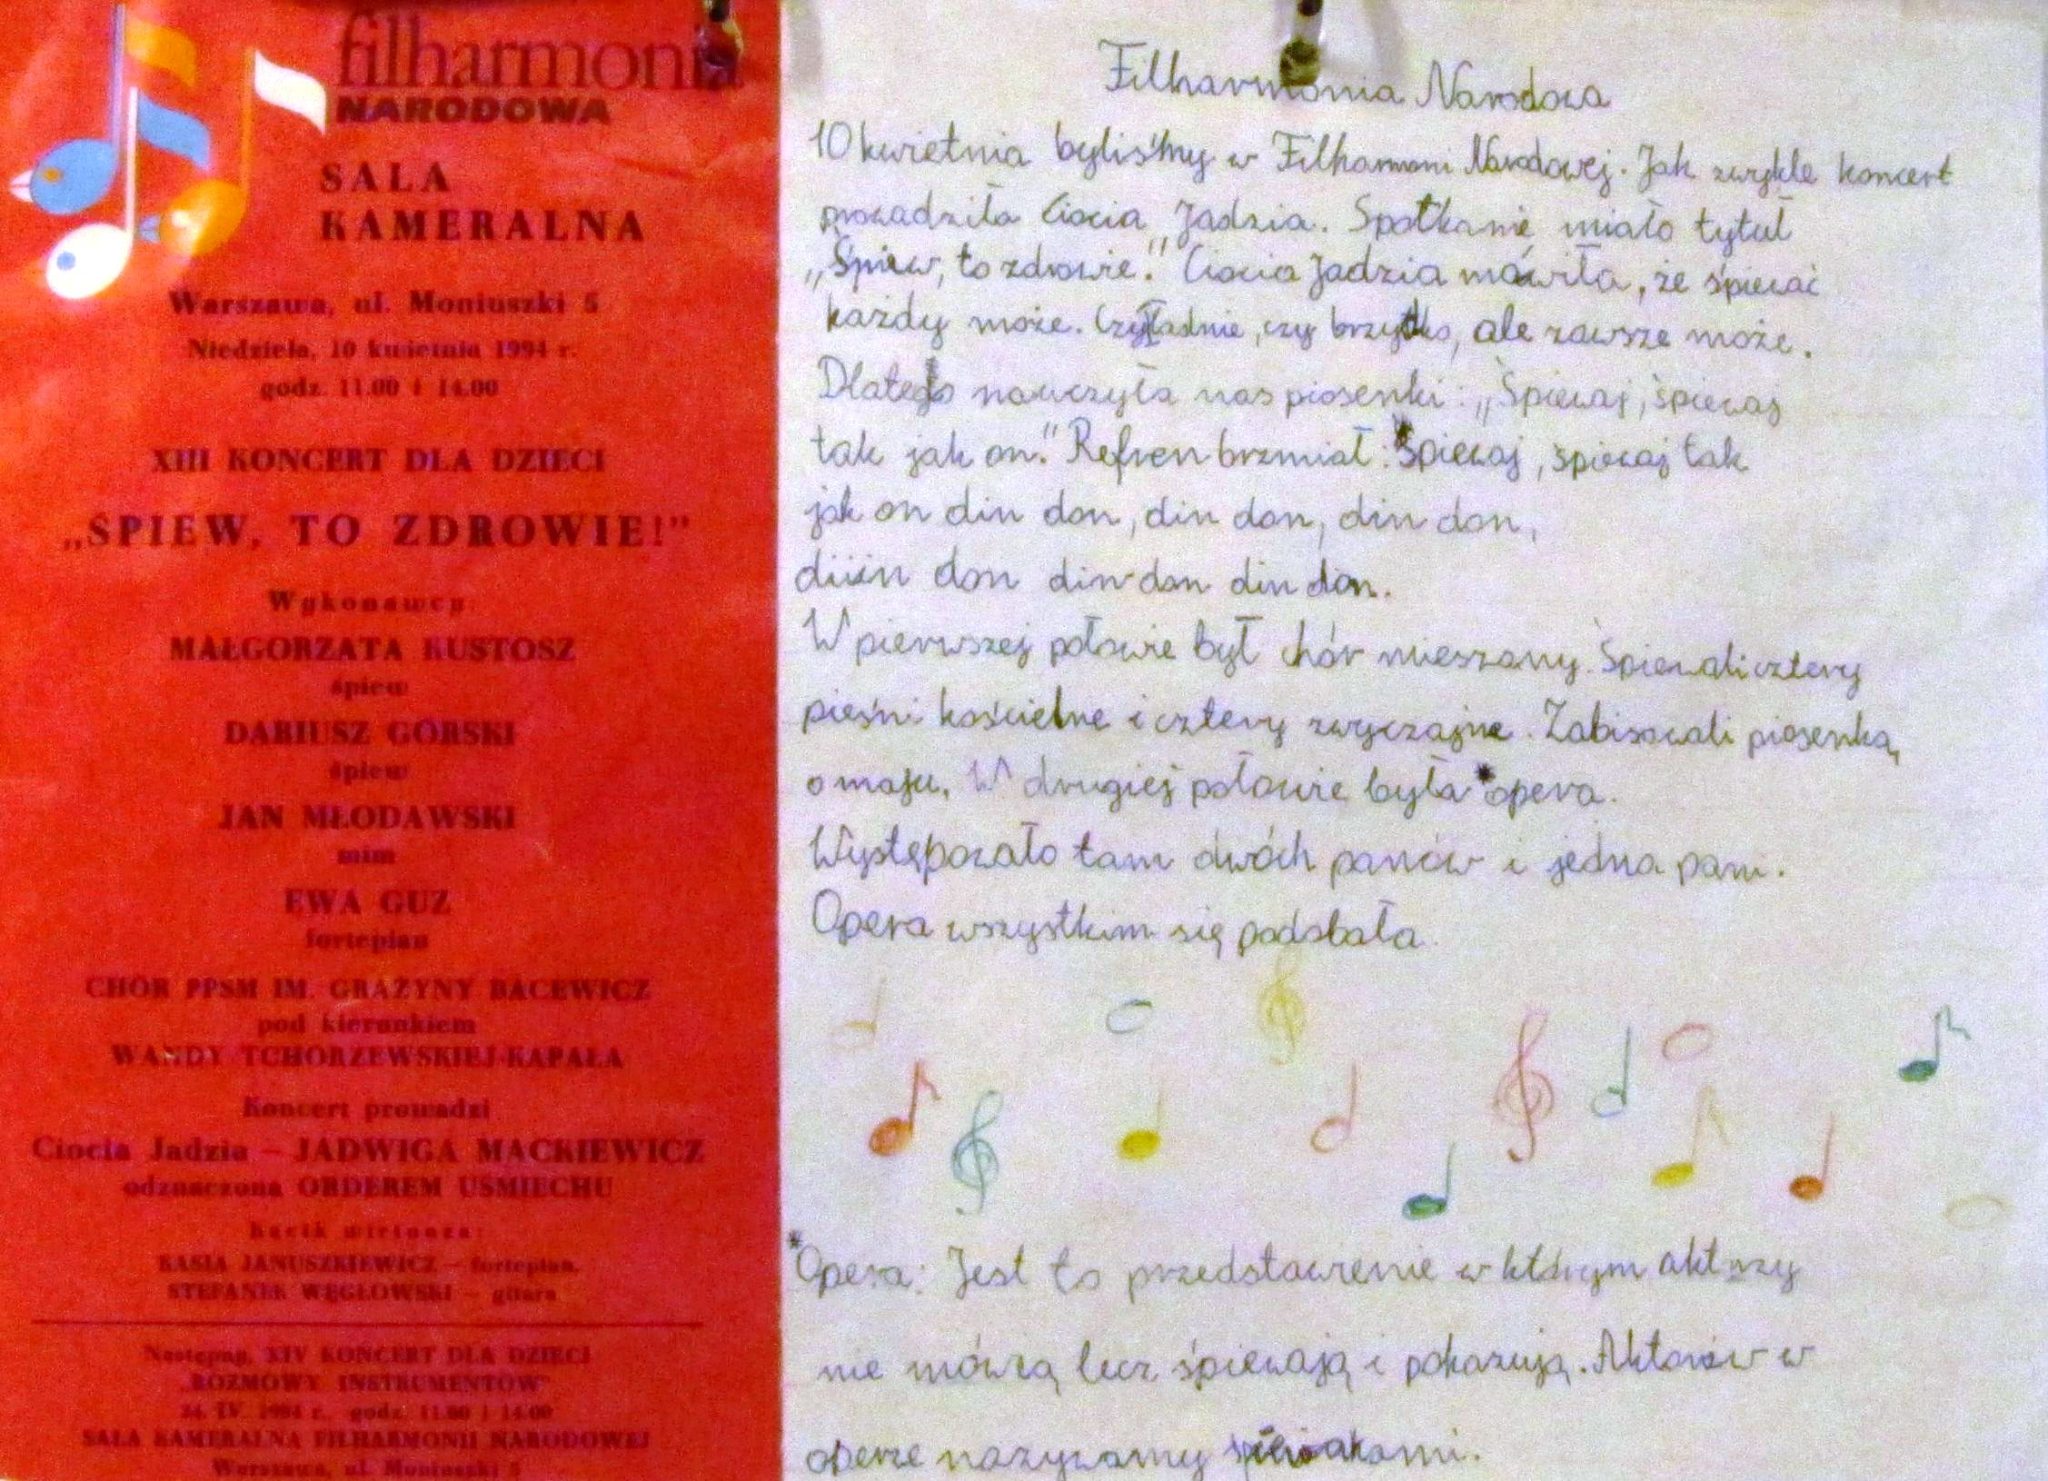 filharmonia
NARODOWA
SALA
KAMERALNA
Warszawa, ul. Moniuszki 5
Niedziela, 10 kwietnia 1994 r.
godz. 11.00 i 14.00
XIII KONCERT DLA DZIECI
„ŚPIEW, TO ZDROWIE!”
Wykonawcy:
MAŁGORZATA KUSTOSZ
śpiew
DARIUSZ GÓRSKI
śpiew
JAN MŁODAWSKI
mim
EWA GUZ
fortepian
CHÓR PPSM IM. GRAŻYNY BACEWICZ
pod kierunkiem
WANDY TCHÓRZEWSKIEJ-KAPAŁA
Koncert prowadzi
Ciocia Jadzia – JADWIGA MACKIEWICZ
odznaczona ORDEREM UŚMIECHU
Kącik wirtuoza:
KASIA JANUSZKIEWICZ – fortepian,
STEFANEK WĘGŁOWSKI – gitara
Następny, XIV KONCERT DLA DZIECI
„ROZMOWY INSTRUMENTÓW”
24. IV. 1994 r. godz. 11.00 i 14.00
SALA KAMERALNA FILHARMONII NARODOWEJ
Warszawa, ul. Moniuszki 5
Filharmonia Narodowa
10 kwietnia byliśmy w Filharmoni Narodowej. Jak zwykle koncert
prowadziła Ciocia Jadzia. Spotkanie miało tytuł
„Śpiew, to zdrowie." Ciocia Jadzia mówiła, że śpiewać
każdy może. Czy ładnie, czy brzydko, ale zawsze może.
Dlatego nauczyła nas piosenki: „Śpiewaj, śpiewaj
tak jak on." Refren brzmiał: Śpiewaj, śpiewaj tak
jak on din don, din don, din don,
diiin don din don din don.
W pierwszej połowie był chór mieszany. Śpiewali cztery
pieśni kościelne i cztery zwyczajne. Zabisowali piosenką
o maju. W drugiej połowie była *opera.
Występowało tam dwóch panów i jedna pani.
Opera wszystkim się podobała.
*Opera: Jest to przedstawienie w którym aktorzy
nie mówią lecz śpiewają i pokazują. Aktorów w
operze nazywamy śpiewakami.